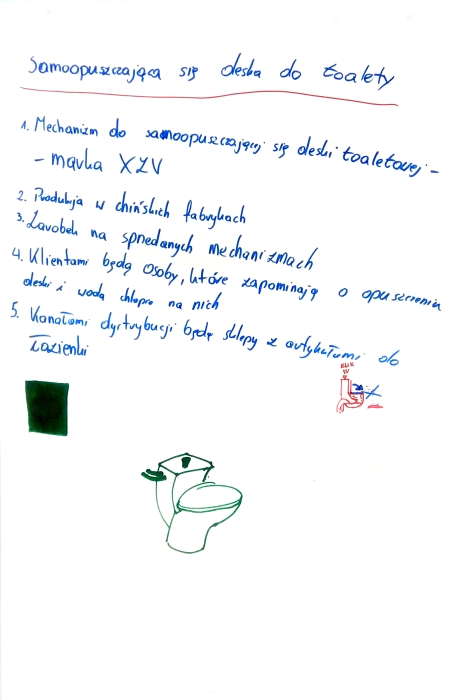 Samoopuszczająca się deska do toalety
1. Mechanizm do samoopuszczającej się deski toaletowej -
- marka XZV
2. Produkcja w chińskich fabrykach
3. Zarobek na sprzedanych mechanizmach
4. Klientami będą osoby, które zapominają o opuszczeniu
deski i woda chlapie na nich
5. Kanałami dystrybucji będą sklepy z artykułami do
łazienki
KLIK